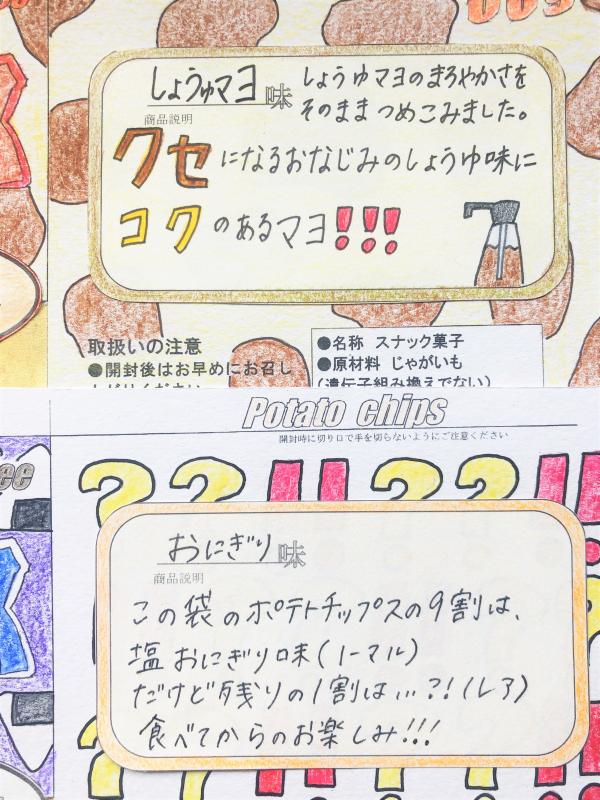 しょうゆマヨ味
商品説明
しょうゆマヨのまろやかさを
そのままつめこみました。
クセになるおなじみのしょうゆ味に
コクのあるマヨ!!!
取扱いの注意
●開封後はお早めにお召し
●名称 スナック菓子
●原材料 じゃがいも
(遺伝子組み換えでない)
Potato chips
開封時に切り口で手を切らないようにご注意ください
??!!??!!
おにぎり味
商品説明
この袋のポテトチップスの9割は、
塩おにぎり味(ノーマル)
だけど残りの1割は…?!(レア)
食べてからのお楽しみ!!!